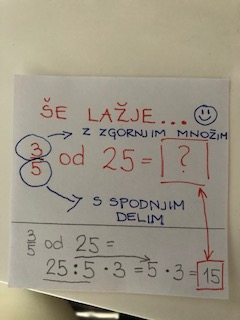 ŠE LAŽJE...
Z ZGORNJIM MNOŽIM
3/5 od 25 = ?
S SPODNJIM
DELIM
3/5 od 25 =
25 : 5 · 3 = 5 · 3 = 15